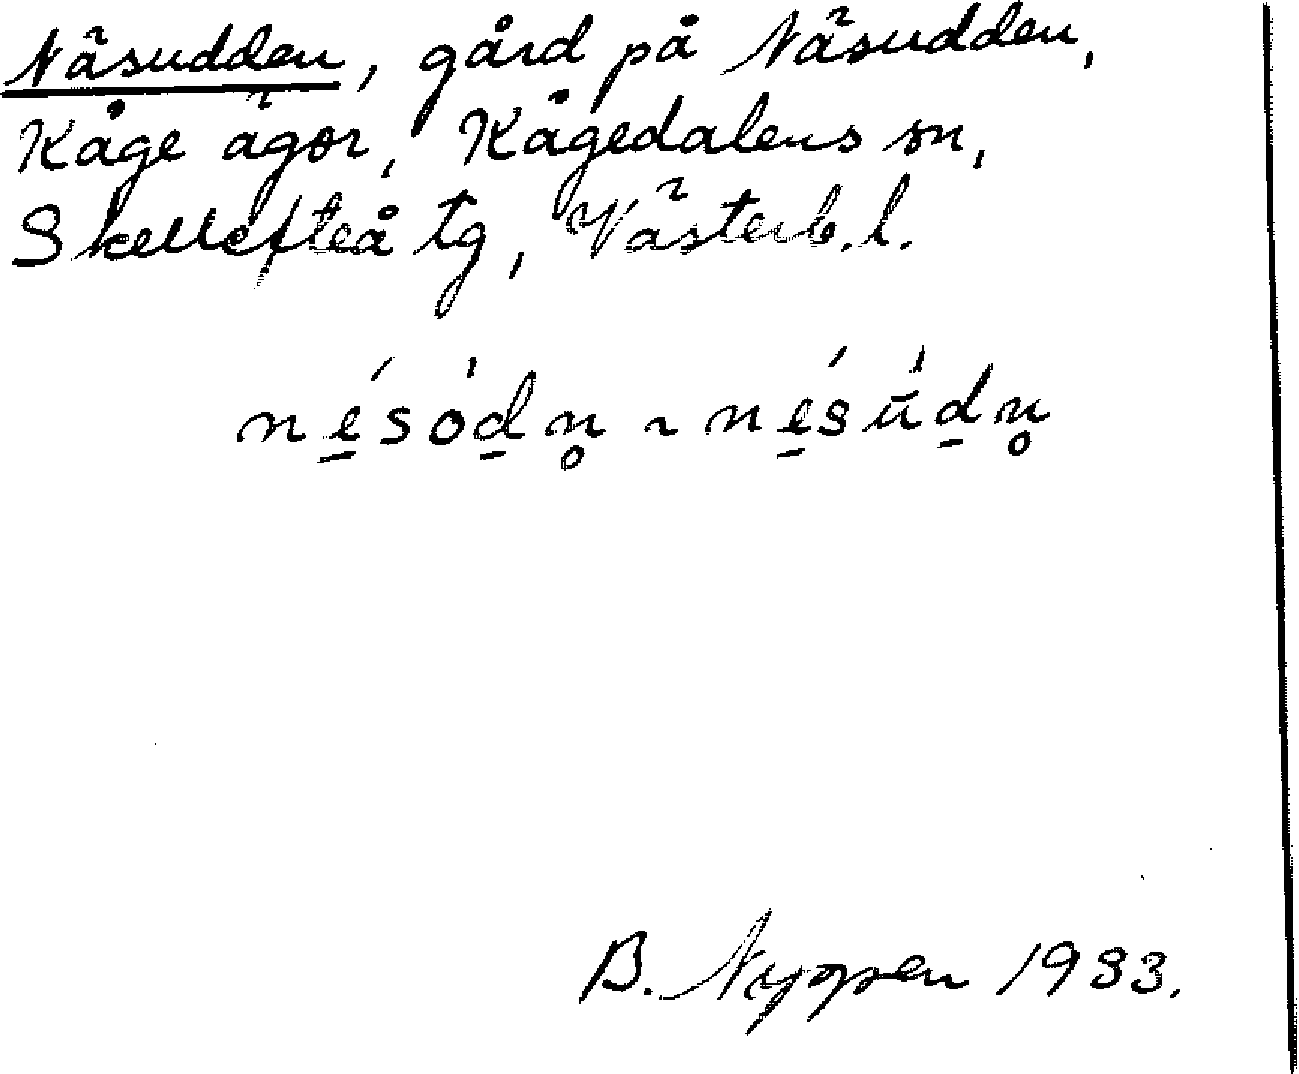 Näsudden, gård på Näsudden,
Kåge ägor, Kågedalens sn,
Skellefteå tg, Västerb. l.
né̱sòḏn̥ ~ né̱sū̀ḏn̥
B. Nygren 1933.